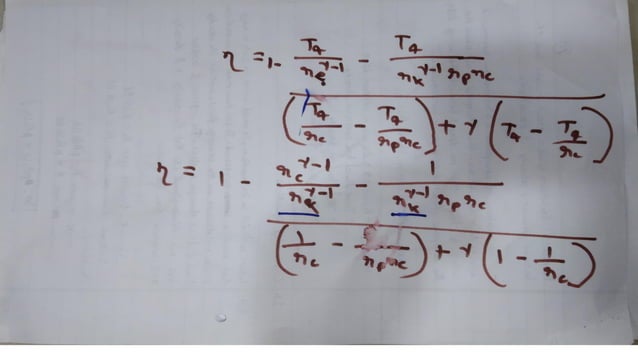 η = 1 - T₄/r_e^(γ-1) - T₄/(r_k^(γ-1) r_p r_c)
(T₄/r_c - T₄/(r_p r_c)) + γ (T₄ - T₄/r_c)
η = 1 - r_c^(γ-1)/r_k^(γ-1) - 1/(r_k^(γ-1) r_p r_c)
(1/r_c - /(r_p r_c)) + γ (1 - 1/r_c)